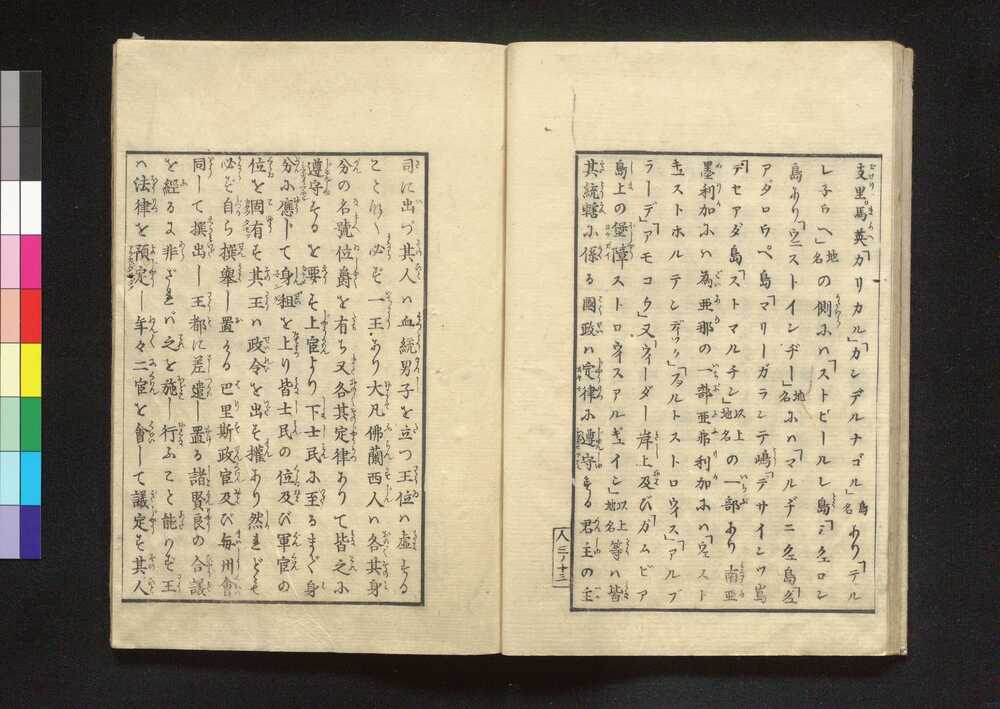 支里。馬英「カリカル」「カンデルナゴル」島名あり「テル
レ子ウヘ」地名の側にハ「ストピールレ島「ミクエロン
島あり「ウエストインヂー」地名にハ「マルヂニクエ島「クエ
アダロウペ島「マリーガランテ嶋「デサインツ嶌
「デセアダ島「ストマルチン」以上地名の一部あり南亜
墨利加にハ為亜那の一部亜弗利加にハ「ウエスト
キュストホルテンデック」「アルトストロウイス」「アルブ
ラーデ」「アモコウ」又「ウィーダー岸上及びガムビア
島上の堡障ストロウイスアルギュイン」以上地名等ハ皆
其統轄に係る國政ハ定律に遵守する君主の主
人三ノ十三
司に出づ其人ハ血統男子を立つ王位ハ虚する
こと𛂦く必ず一王あり大凡佛蘭西人ハ各其身
分の名號位爵を有ち又各其定律ありて皆之に
遵守するを要す上官より下士民に至るまで身
分に應じて身租を上り皆士民の位及び軍官の
位を固有す其王ハ政令を出す權あり然れども
必ず自ら撰擧し置ける巴里斯政官及び毎州會
同して撰出し王都に差遣し置る諸賢良の合議
を經るに非ざれバ之を施し行ふこと能ハず王
ハ法律を預定し年々二官を會して議定す其人